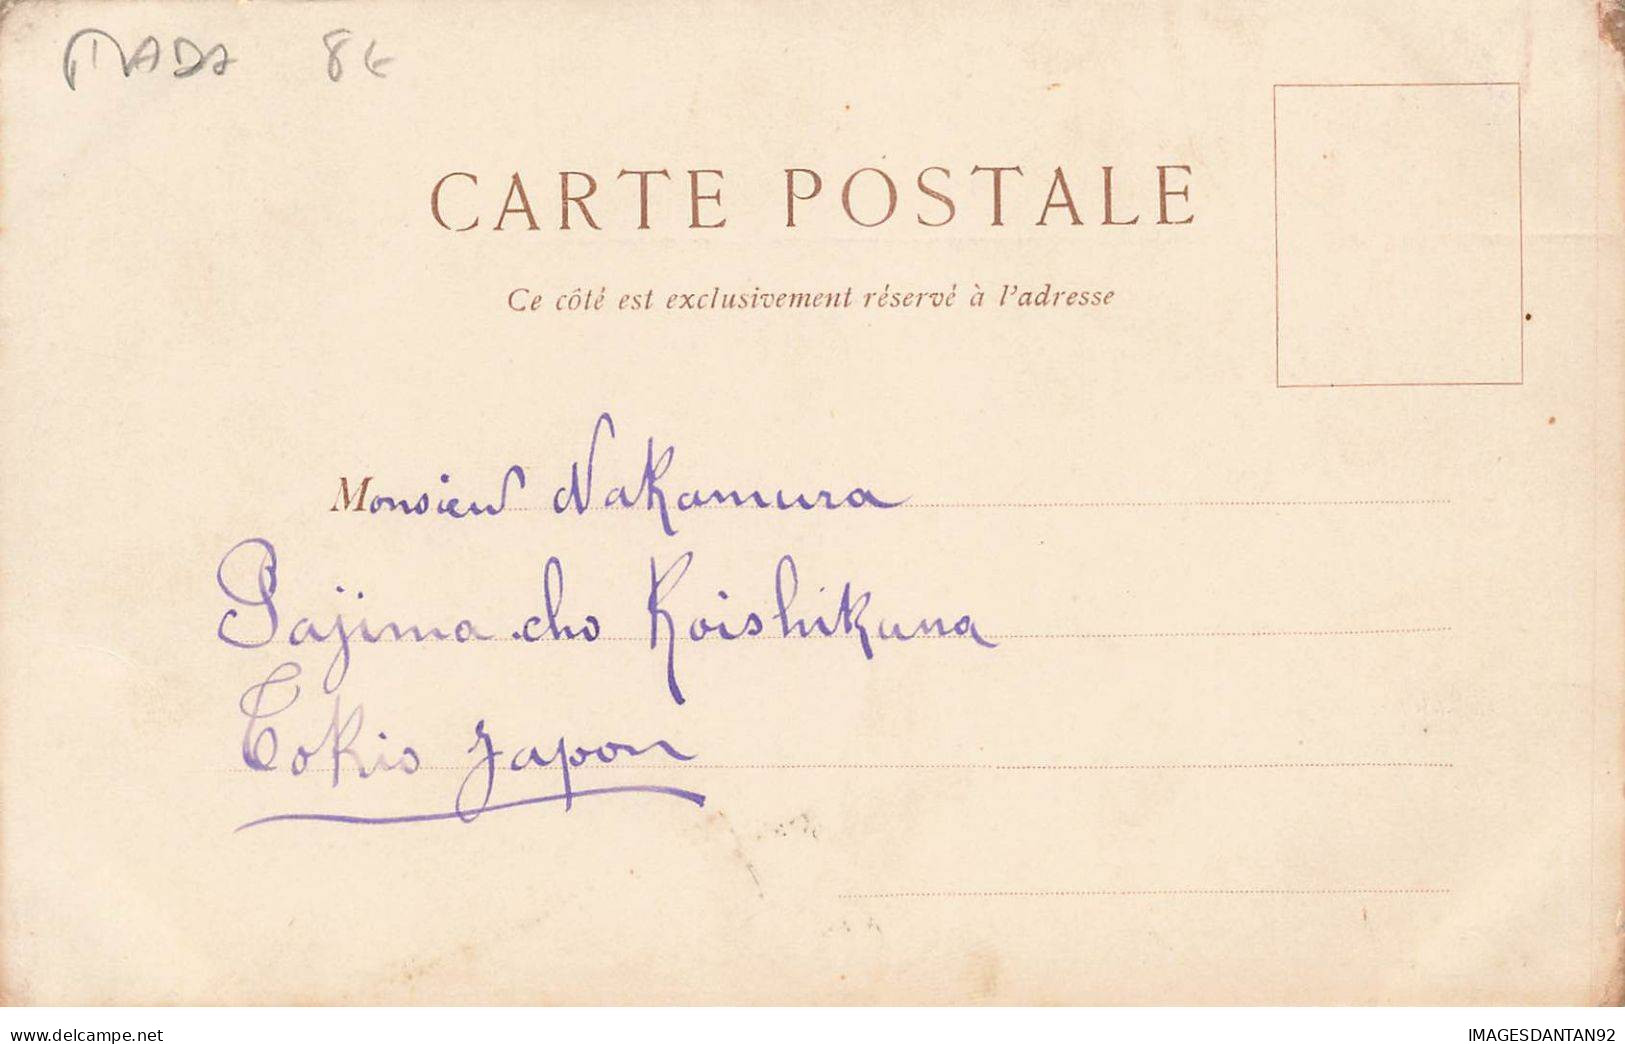 MADA 8€
CARTE POSTALE
Ce côté est exclusivement réservé à l'adresse
Monsieur Nakamura
Sajima-cho Koishikuna
Tokio Japon
www.delcampe.net
IMAGESDANTAN92